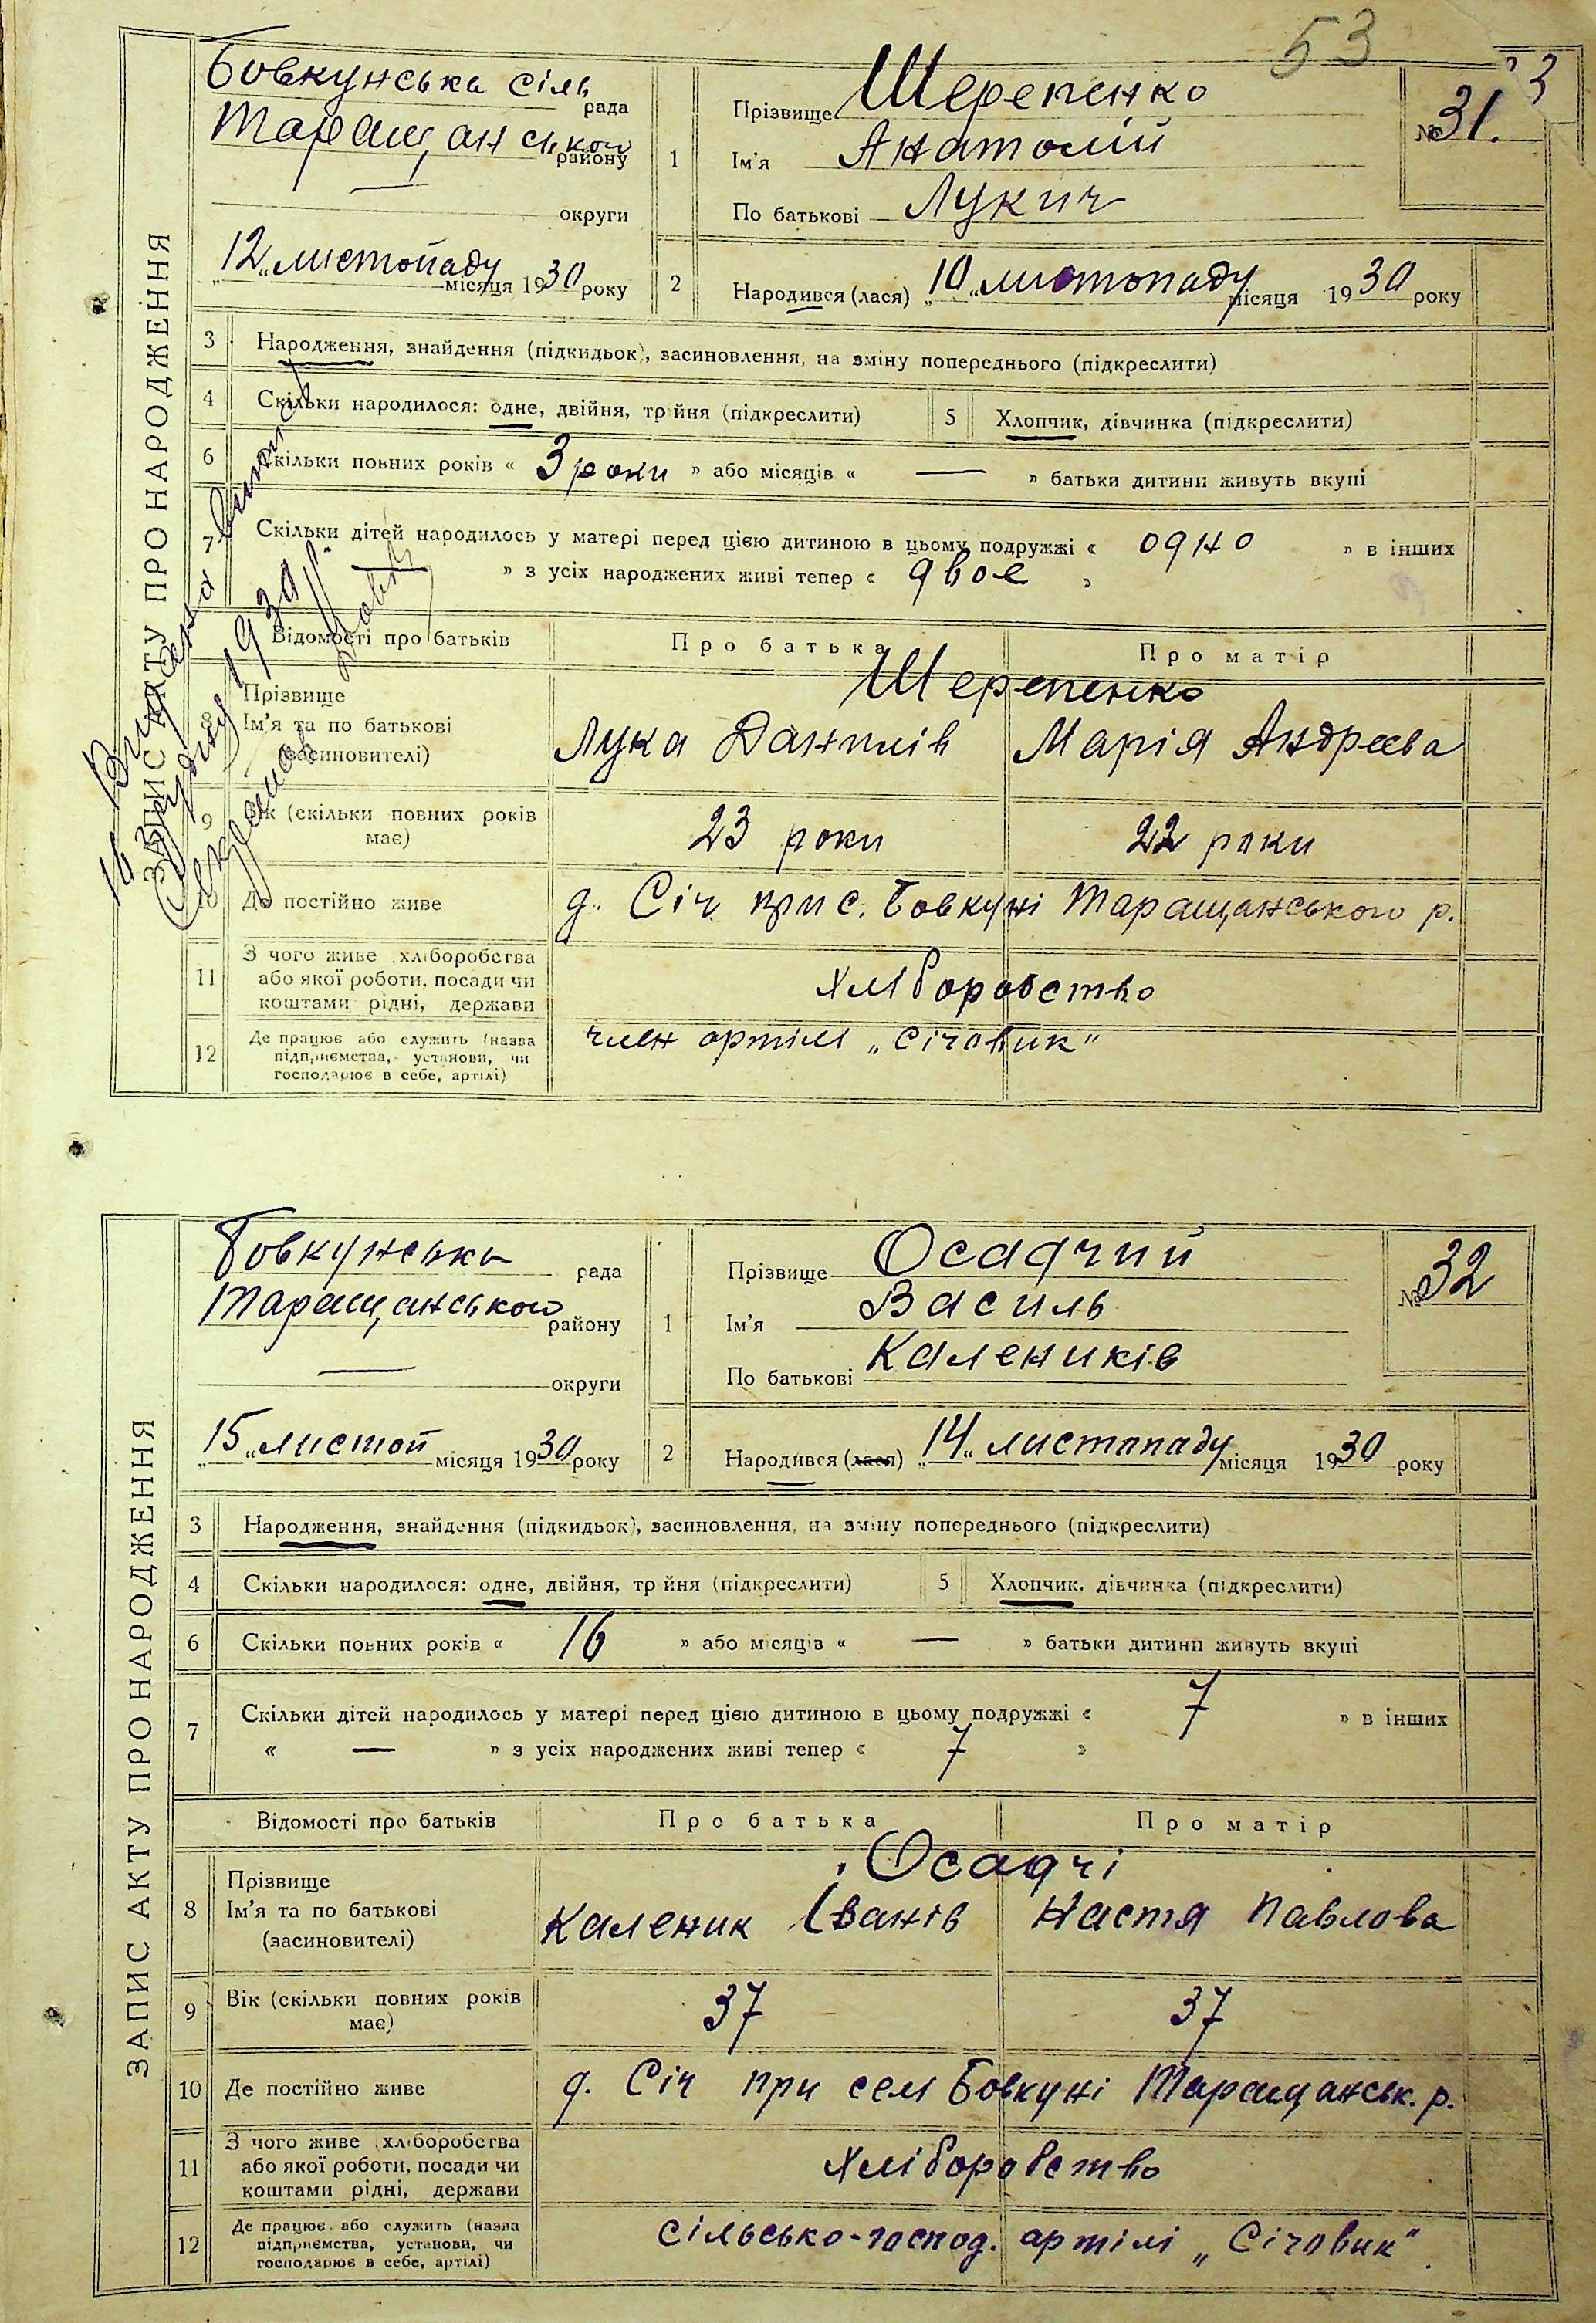 53
ЗАПИС АКТУ ПРО НАРОДЖЕННЯ
Бовкунська сіль рада
Таращанського району
— округи
"12" листопаду місяця 1930 року
1
Прізвище Шерепенко
Ім'я Анатолій
По батькові Лукич
№ 31.
2
Народився (лася) "10" листопаду місяця 1930 року
3 Народження, знайдення (підкидьок), засиновлення, на зміну попереднього (підкреслити)
4 Скільки народилося: одне, двійня, трійня (підкреслити) 5 Хлопчик, дівчинка (підкреслити)
6 Скільки повних років « 3 роки » або місяців « — » батьки дитини живуть вкупі
7 Скільки дітей народилось у матері перед цією дитиною в цьому подружжі « одно » в інших
— » з усіх народжених живі тепер « двоє »
Відомості про батьків Про батька Про матір
Шерепенко
8 Прізвище
Ім'я та по батькові
(засиновителі)
Лука Данилів Марія Андреєва
9 Вік (скільки повних років
має)
23 роки 22 роки
10 Де постійно живе д. Січ при с. Бовкуні Таращанського р.
11 З чого живе (хліборобства
або якої роботи, посади чи
коштами рідні, держави
Хліборобство
12 Де працює або служить (назва
підприємства, установи, чи
господарює в себе, артілі)
член артілі „Січовик"
16 грудня 1930 р.
ЗАПИС АКТУ ПРО НАРОДЖЕННЯ
Бовкунська рада
Таращанського району
— округи
"15" листоп місяця 1930 року
1
Прізвище Осадчий
Ім'я Василь
По батькові Калеників
№ 32
2
Народився (лася) "14" листопаду місяця 1930 року
3 Народження, знайдення (підкидьок), засиновлення, на зміну попереднього (підкреслити)
4 Скільки народилося: одне, двійня, трійня (підкреслити) 5 Хлопчик, дівчинка (підкреслити)
6 Скільки повних років « 16 » або місяців « — » батьки дитини живуть вкупі
7 Скільки дітей народилось у матері перед цією дитиною в цьому подружжі « 7 » в інших
« — » з усіх народжених живі тепер « 7 »
Відомості про батьків Про батька Про матір
Осадчі
8 Прізвище
Ім'я та по батькові
(засиновителі)
Каленик Іванів Настя Павлова
9 Вік (скільки повних років
має)
37 37
10 Де постійно живе д. Січ при селі Бовкуні Таращанськ. р.
11 З чого живе (хліборобства
або якої роботи, посади чи
коштами рідні, держави
Хліборобство
12 Де працює або служить (назва
підприємства, установи, чи
господарює в себе, артілі)
сільсько-господ. артілі „Січовик"